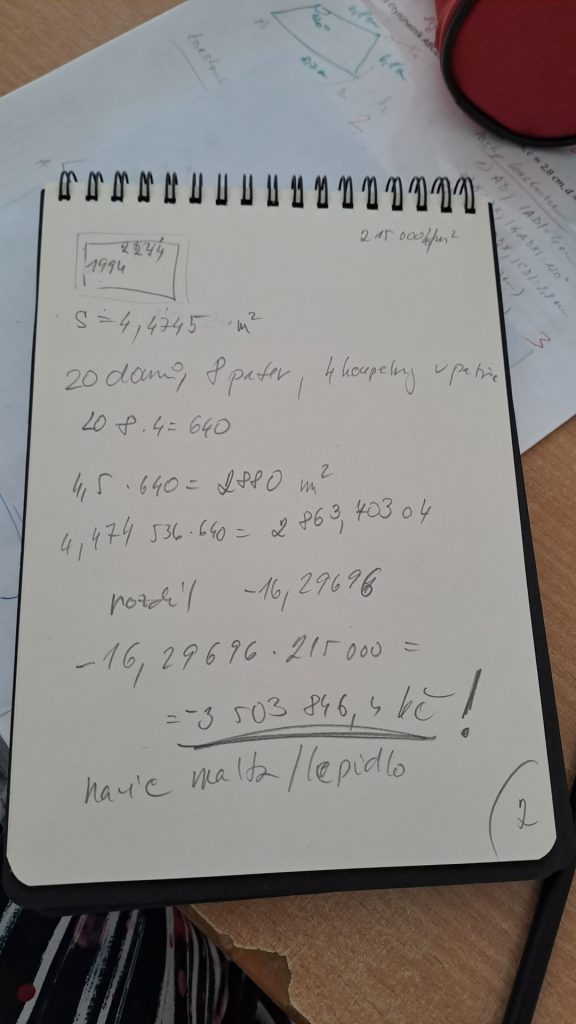 2
= 28 cm
3
215 000 kč/m²
2244
1994
S = 4,4745 m²
20 domů, 8 pater, 4 koupelny v patře
20 8 . 4 = 640
4,5 . 640 = 2880 m²
4,474 536 . 640 = 2 863,703 04
rozdíl -16,29696
-16,29696 . 215 000 =
= -3 503 846,4 kč !
navíc malta/lepidlo
2